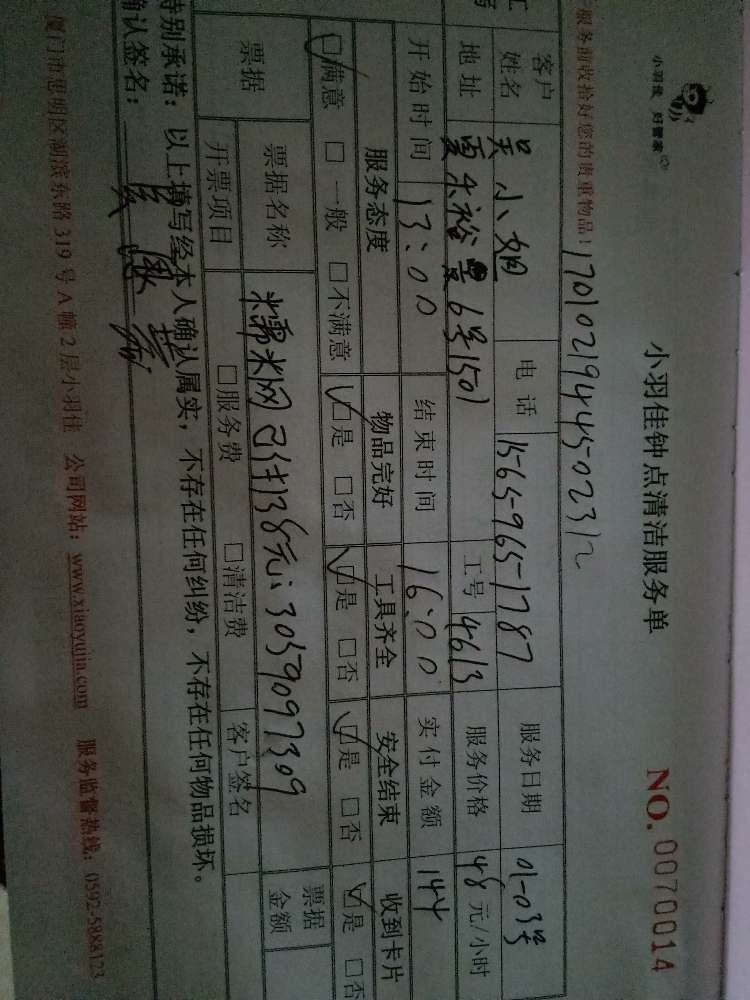 小羽佳 好管家
小羽佳钟点清洁服务单 NO. 0070014
服务前收拾好您的贵重物品! 17010219444502312
客户姓名 吴小姐 电话 1565-965-1787 服务日期 01-03号
地址 夏禾裕景6号1501 工号 4613 服务价格 48 元/小时
开始时间 13:00 结束时间 16:00 实付金额 144
服务态度 物品完好 工具齐全 安全结束 收到卡片
☑满意 □一般 □不满意 ☑是 □否 ☑是 □否 ☑是 □否 ☑是 □否
票据 票据名称 糯米网已付138元: 3059097309 票据金额
开票项目 □服务费 □清洁费 客户签名
特别承诺: 以上填写经本人确认属实, 不存在任何纠纷, 不存在任何物品损坏。
确认签名:
厦门市思明区湖滨东路 319 号 A 幢 2 层小羽佳 公司网站: www.xiaoyujia.com 服务监督热线: 0592-5888123